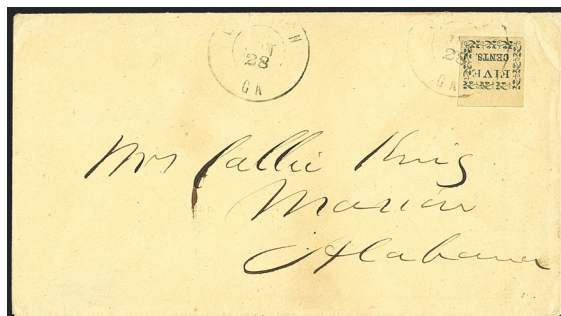 28
GA
28
GA
FIVE
CENTS.
Mrs Callie King
Marion
Alabama